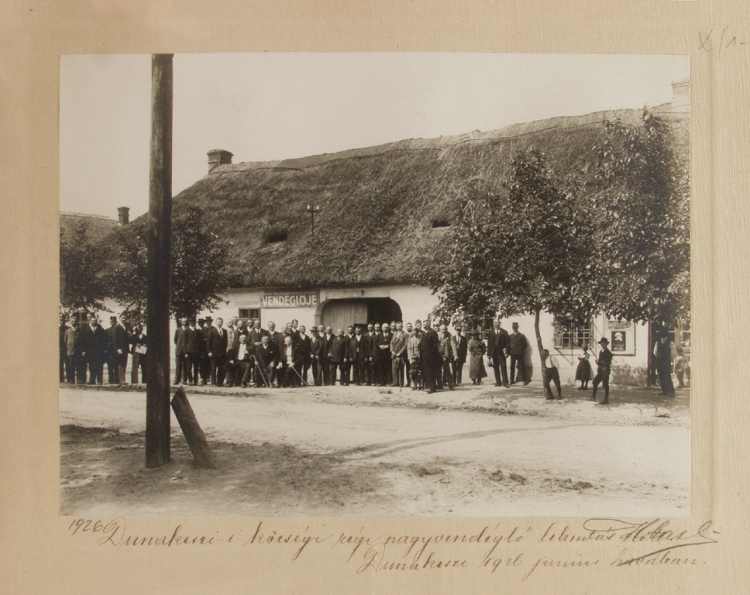 X/1-
VENDÉGLŐJE
1926 Dunakeszi-i községi régi nagyvendéglő
Dunakeszi 1926 junius havában.